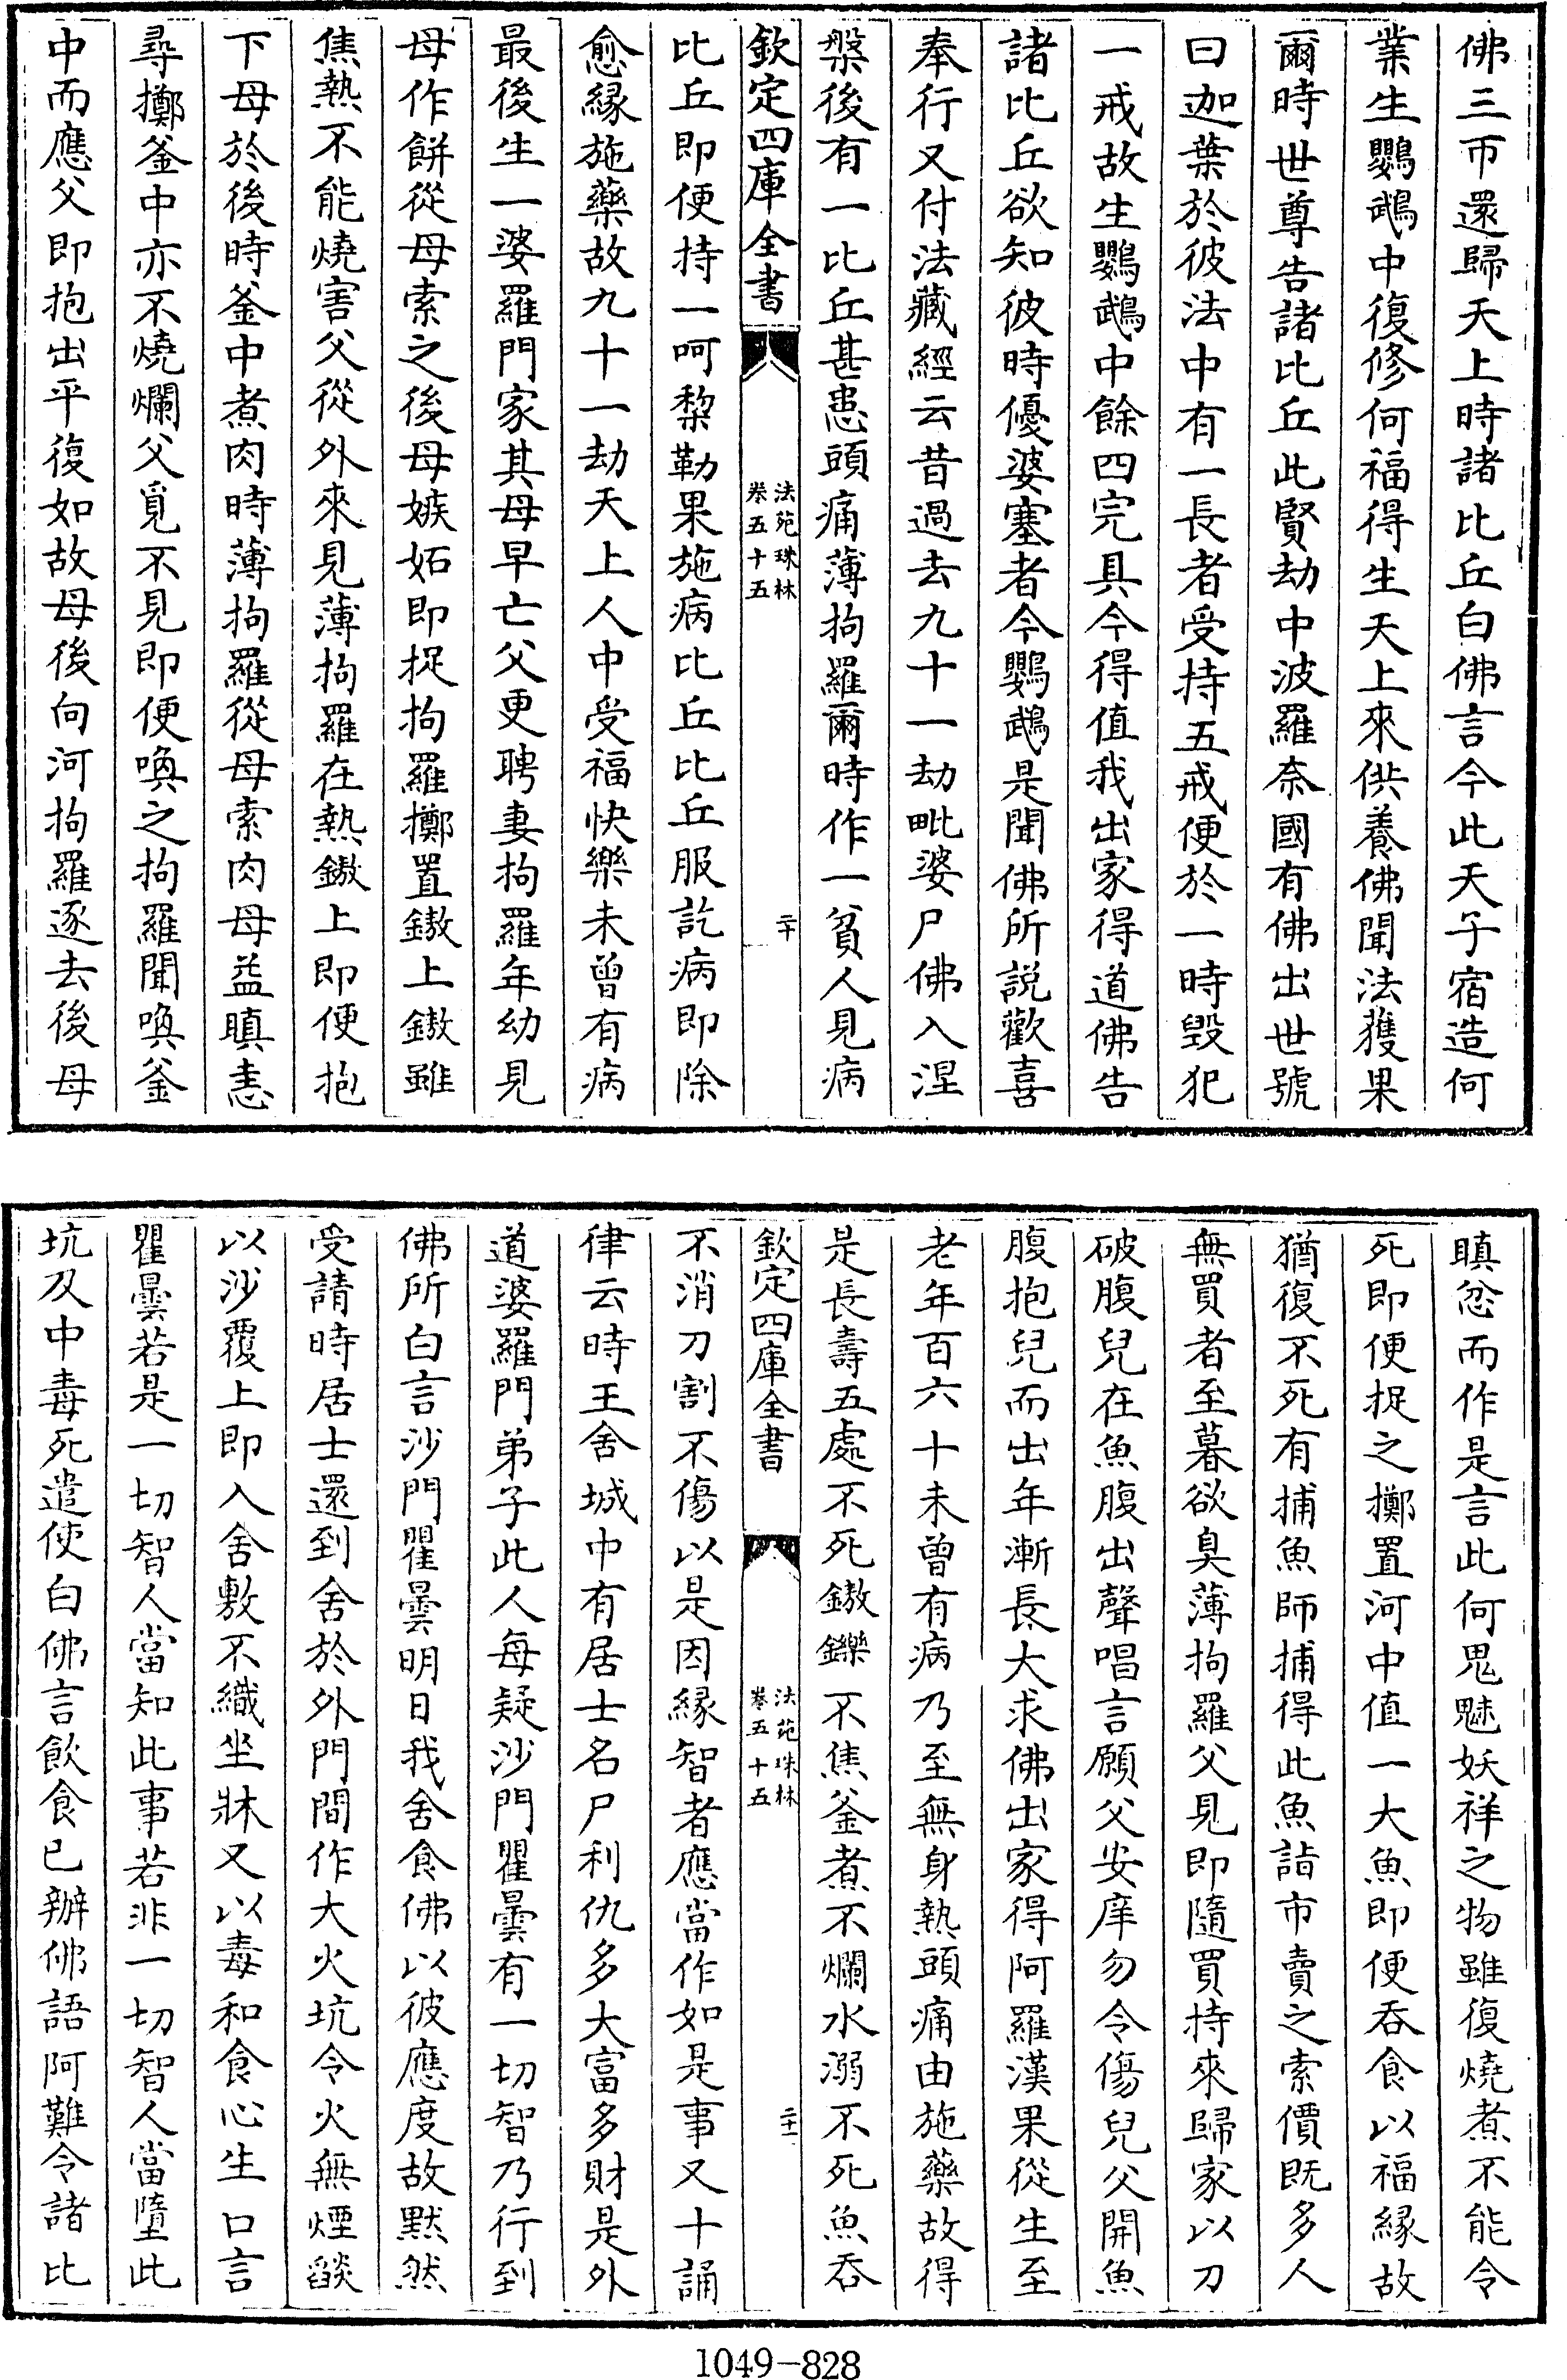 佛三帀還歸天上時諸比丘白佛言今此天子宿造何
業生鸚鵡中復修何福得生天上來供養佛聞法獲果
爾時世尊告諸比丘此賢劫中波羅奈國有佛出世號
曰迦葉於彼法中有一長者受持五戒便於一時毀犯
一戒故生鸚鵡中餘四完具今得值我出家得道佛告
諸比丘欲知彼時優婆塞者今鸚鵡是聞佛所説歡喜
奉行又付法藏經云昔過去九十一劫毗婆尸佛入涅
槃後有一比丘甚患頭痛薄拘羅爾時作一貧人見病
欽定四庫全書
法苑珠林
卷五十五
二十
比丘即便持一呵棃勒果施病比丘比丘服訖病即除
愈縁施藥故九十一劫天上人中受福快樂未曾有病
最後生一婆羅門家其母早亡父更聘妻拘羅年幼見
母作餅從母索之後母嫉妬即捉拘羅擲置鏊上鏊雖
焦熱不能燒害父從外來見薄拘羅在熱鏊上即便抱
下母於後時釜中煮肉時薄拘羅從母索肉母益瞋恚
尋擲釜中亦不燒爛父覓不見即便喚之拘羅聞喚釜
中而應父即抱出平復如故母後向河拘羅逐去後母
瞋忿而作是言此何鬼魅妖祥之物雖復燒煮不能令
死即便捉之擲置河中值一大魚即便吞食以福縁故
猶復不死有捕魚師捕得此魚詣市賣之索價既多人
無買者至暮欲臭薄拘羅父見即隨買持來歸家以刀
破腹兒在魚腹出聲唱言願父安庠勿令傷兒父開魚
腹抱兒而出年漸長大求佛出家得阿羅漢果從生至
老年百六十未曾有病乃至無身熱頭痛由施藥故得
是長壽五處不死鏊鑠不焦釜煮不爛水溺不死魚吞
欽定四庫全書
法苑珠林
卷五十五
二十一
不消刀割不傷以是因縁智者應當作如是事又十誦
律云時王舍城中有居士名尸利仇多大富多財是外
道婆羅門弟子此人每疑沙門瞿曇有一切智乃行到
佛所白言沙門瞿曇明日我舍食佛以彼應度故默然
受請時居士還到舍於外門間作大火坑令火無煙燄
以沙覆上即入舍敷不織坐牀又以毒和食心生口言
瞿曇若是一切智人當知此事若非一切智人當墮此
坑及中毒死遣使白佛言飲食已辦佛語阿難令諸比
1049-828